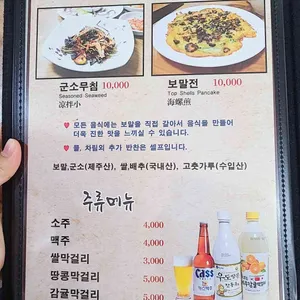 군소무침 10,000
Seasoned Seaweed
凉拌小
보말전 10,000
Top Shells Pancake
海螺煎
♥ 모든 음식에는 보말을 직접 갈아서 음식을 만들어
더욱 진한 맛을 느끼실 수 있습니다.
♥ 물, 차림외 추가 반찬은 셀프입니다.
보말,군소(제주산), 쌀,배추(국내산), 고춧가루(수입산)
주류메뉴
소주 4,000
맥주 4,000
쌀막걸리 3,000
땅콩막걸리 5,000
감귤막걸리 5,000
Cass